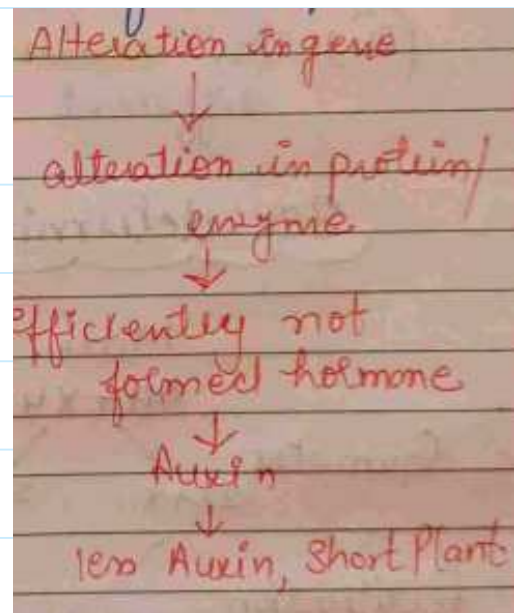 Alteration in gene
↓
alteration in protein/
enzyme
↓
Efficiently not
formed hormone
↓
Auxin
↓
less Auxin, Short Plant